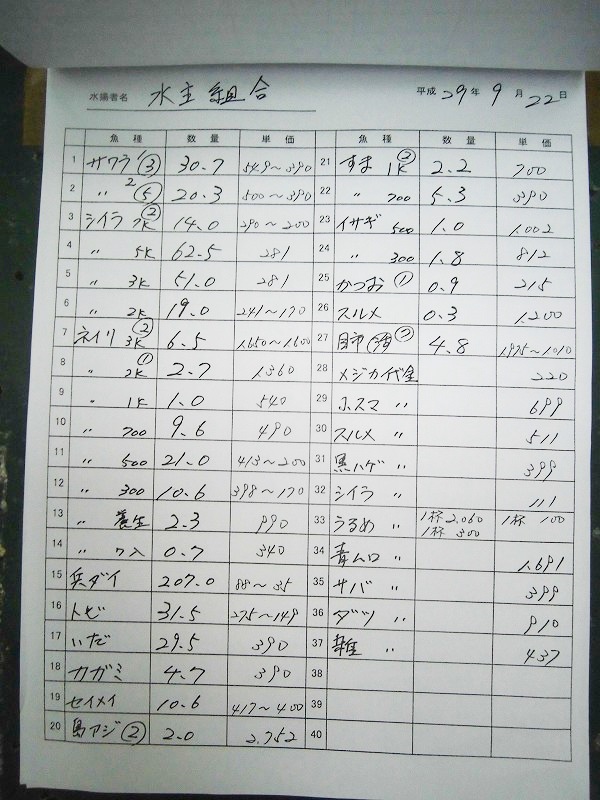 水揚者名 水主組合 平成29年9月22日
魚種 数量 単価 魚種 数量 単価
1 サワラ ③ 30.7 549～390
2 〃 ⑤ 20.3 500～390
3 シイラ ② 7K 14.0 290～200
4 〃 5K 62.5 281
5 〃 3K 51.0 281
6 〃 2K 19.0 241～170
7 ネイリ ② 3K 6.5 1.650～1600
8 〃 ① 2K 2.7 1360
9 〃 1K 1.0 540
10 〃 700 9.6 490
11 〃 500 21.0 413～200
12 〃 300 10.6 398～170
13 〃 養生 2.3 990
14 〃 ワ入 0.7 340
15 兵ダイ 207.0 88～35
16 トビ 31.5 275～149
17 いだ 29.5 390
18 カガミ 4.7 390
19 セイメイ 10.6 417～400
20 島アジ ② 2.0 2.752
21 すま ② 1K 2.2 700
22 〃 700 5.3 390
23 イサギ 500 1.0 1.002
24 〃 300 1.8 812
25 かつお ① 0.9 215
26 スルメ 0.3 1.200
27 4.8 1975～1010
28 メジカ代金 220
29 ホスマ 〃 699
30 スルメ 〃 511
31 黒ハゲ 〃 399
32 シイラ 〃 111
33 うるめ 〃 1杯 2.060 1杯 100
1杯 300
34 青ムロ 〃 1.691
35 サバ 〃 399
36 ダツ 〃 910
37 雑 〃 437
38
39
40